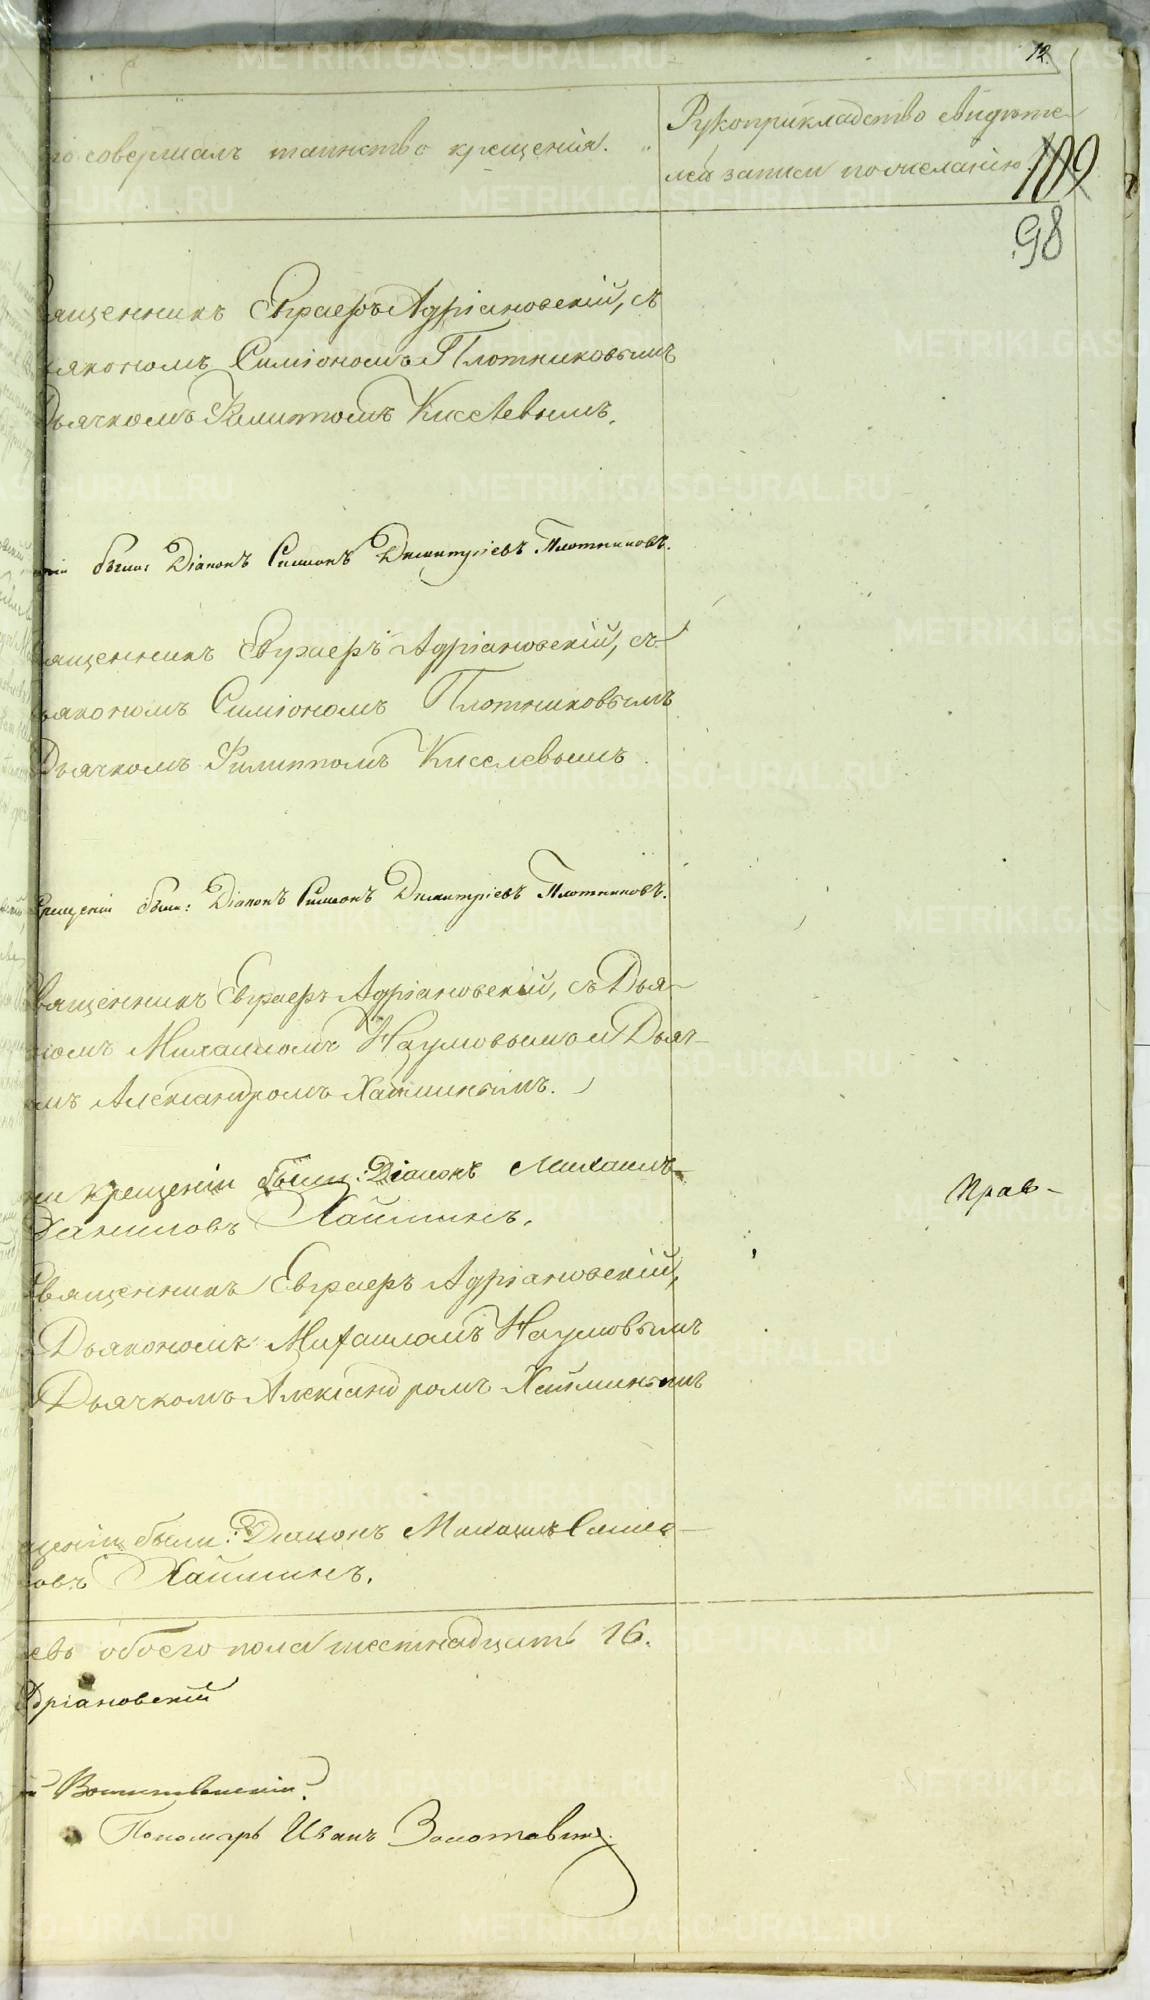 12.
го совершалъ таинство крещенія.
Рукоприкладство свидѣте-
лей записи по желанію.
109
98
вященникъ Евграфъ Адріановскій, съ
ьякономъ Симіономъ Плотниковымъ
Дьячкомъ Филиппомъ Киселевымъ.
были: Діаконъ Симеонъ Димитріевъ Плотниковъ.
вященникъ Евграфъ Адріановскій, съ
ьякономъ Симіономъ Плотниковымъ
Дьячкомъ Филиппомъ Киселевымъ.
крещеніи были: Діаконъ Симеонъ Димитріевъ Плотниковъ.
Священникъ Евграфъ Адріановскій, съ Дья-
номъ Михаиломъ Наумовымъ и Дьяч-
мъ Александромъ Хайминымъ.
ри крещеніи были: Діаконъ Михаилъ
Хайминъ.
Прав-
Священникъ Евграфъ Адріановскій,
Дьякономъ Михаиломъ Наумовымъ
Дьячкомъ Александромъ Хайминымъ
щеніи были: Діаконъ Михаилъ
овъ Хайминъ.
обоего пола шестнадцать 16.
дріановскій
Пономарь Иванъ Золотавинъ.
METRIKI.GASO-URAL.RU